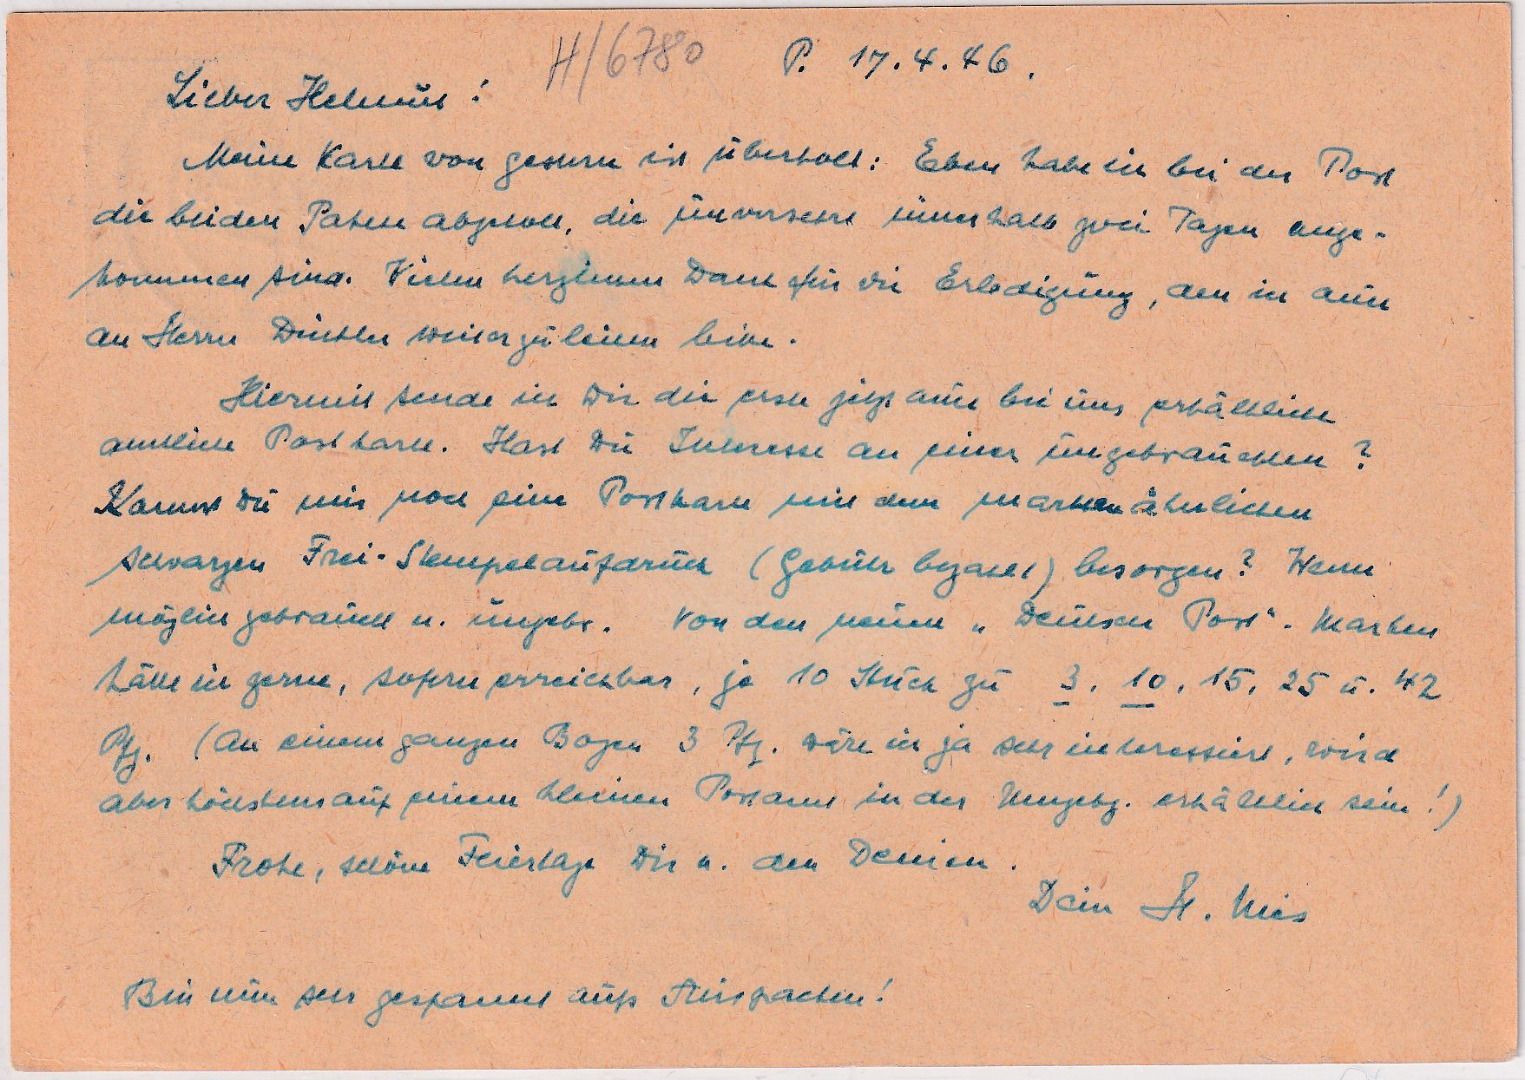 H/6780
P. 17.4.46.
Lieber Helmut!
Meine Karte von gestern ist überholt: Eben habe ich bei der Post
die beiden Pakete abgeholt, die unversehrt innerhalb zwei Tagen ange-
kommen sind. Vielen herzlichen Dank für die Erledigung, den ich auch
an Herrn weiterzuleiten bitte.
Hiermit sende ich Dir die erste jetzt auch bei uns erhältliche
amtliche Postkarte. Hast Du Interesse an einer ungebrauchten?
Kannst Du mir noch eine Postkarte mit dem markenähnlichen
schwarzen Frei-Stempelaufdruck (Gebühr bezahlt) besorgen? Wenn
möglich gebraucht u. ungebr. Von den neuen „Deutsche Post"-Marken
hätte ich gerne, sofern erreichbar, je 10 Stück zu 3, 10, 15, 25 u. 42
Pfg. (An einem ganzen Bogen 3 Pfg. wäre ich ja sehr interessiert, wird
aber höchstens auf einem kleinen Postamt in der Umgebg. erhältlich sein!)
Frohe, schöne Feiertage Dir u. den Deinen.
Dein
Bin nun sehr gespannt aufs